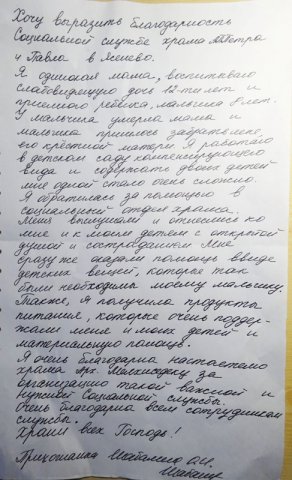 Хочу выразить благодарность
Социальной службе храма Ап. Петра
и Павла в Ясенево.
Я одинокая мама, воспитываю
слабовидящую дочь 12-ти лет и
приемного ребёнка, мальчика 8 лет.
У мальчика умерла мама и
мальчика пришлось забрать мне,
его крёстной матери. Я работаю
в детском саду компенсирующего
вида и содержать двоих детей
мне одной стало очень сложно.
Я обратилась за помощью в
социальный отдел храма.
Меня выслушали и отнеслись ко
мне и к моим детям с открытой
душой и состраданием. Мне
сразу же оказали помощь ввиде
детских вещей, которые так
были необходимы моему мальчику.
Также, я получила продукты
питания, которые очень поддер-
жали меня и моих детей и
материальную помощь.
Я очень благодарна настоятелю
храма Арх. Мелхиседеку за
организацию такой важной и
нужной Социальной службы.
Очень благодарна всем сотрудникам
службы.
Храни всех Господь!
Прихожанка